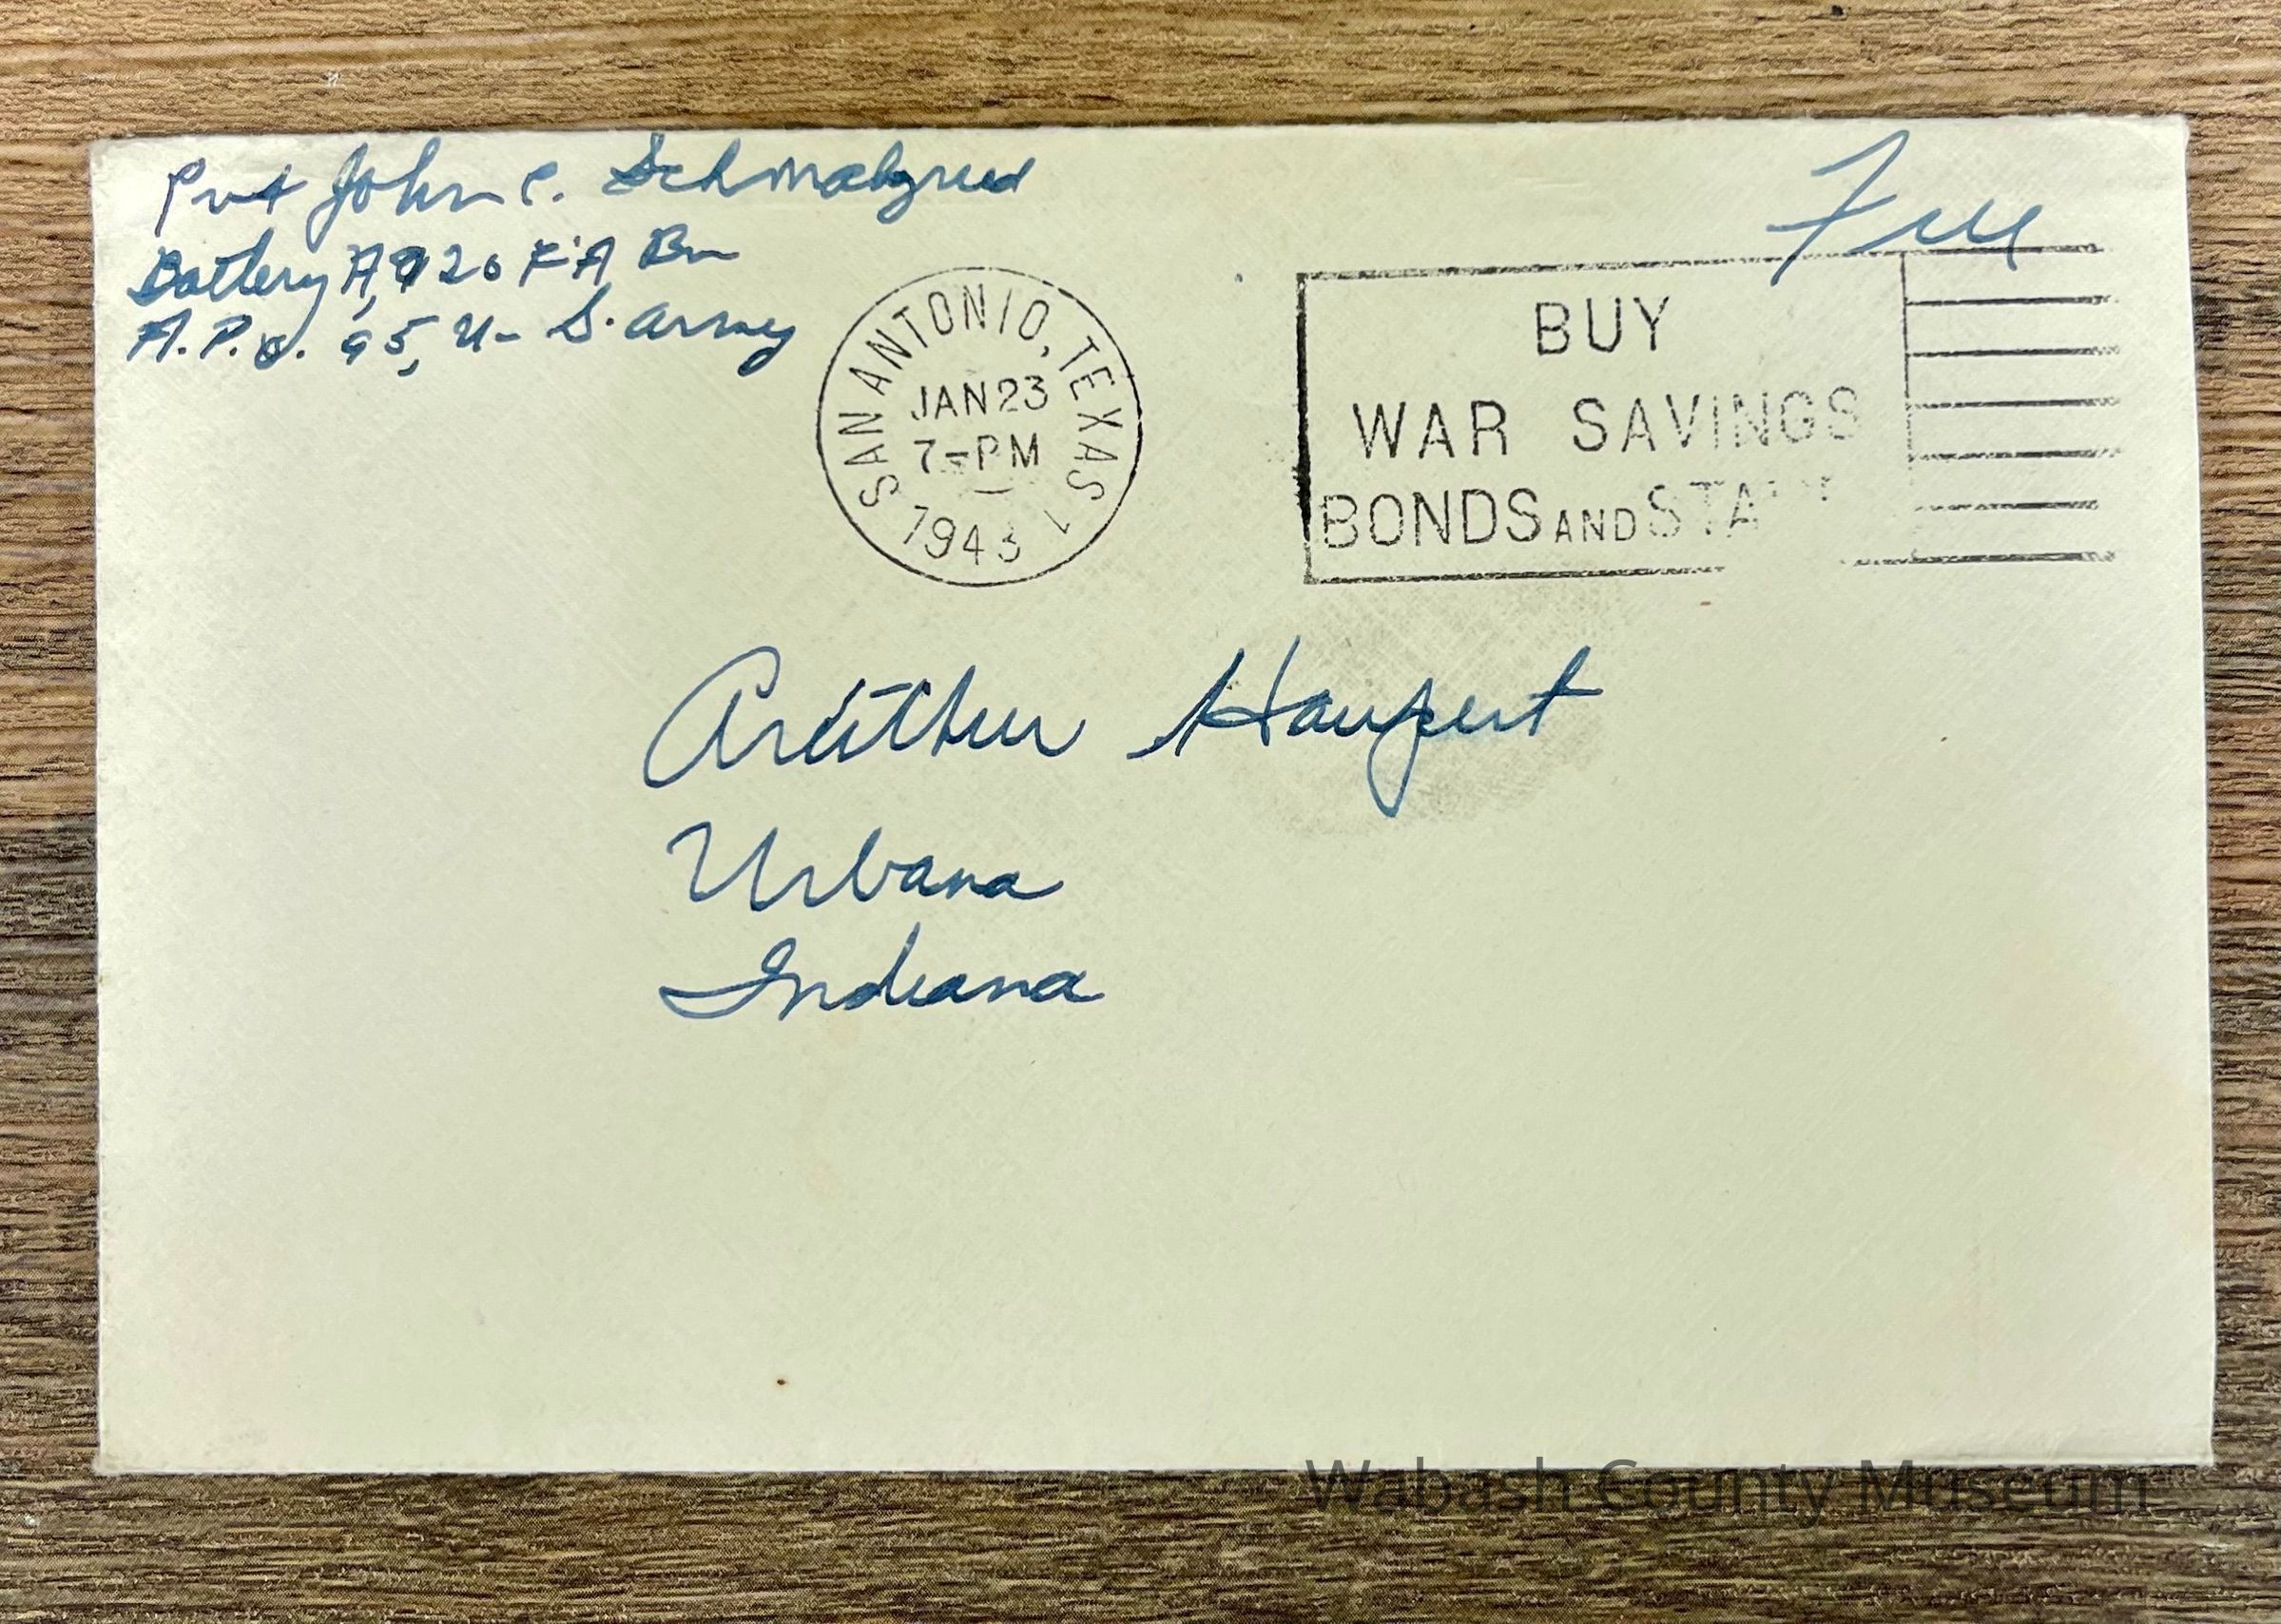 Pvt John C. Schmalzried
Battery A, 920 F.A Bn
A.P.O. 95, U. S. Army
Free
SAN ANTONIO, TEXAS 1
JAN 23
7-PM
1943
BUY
WAR SAVINGS
BONDS AND STA
Arthur Haupert
Urbana
Indiana
Wabash County Museum